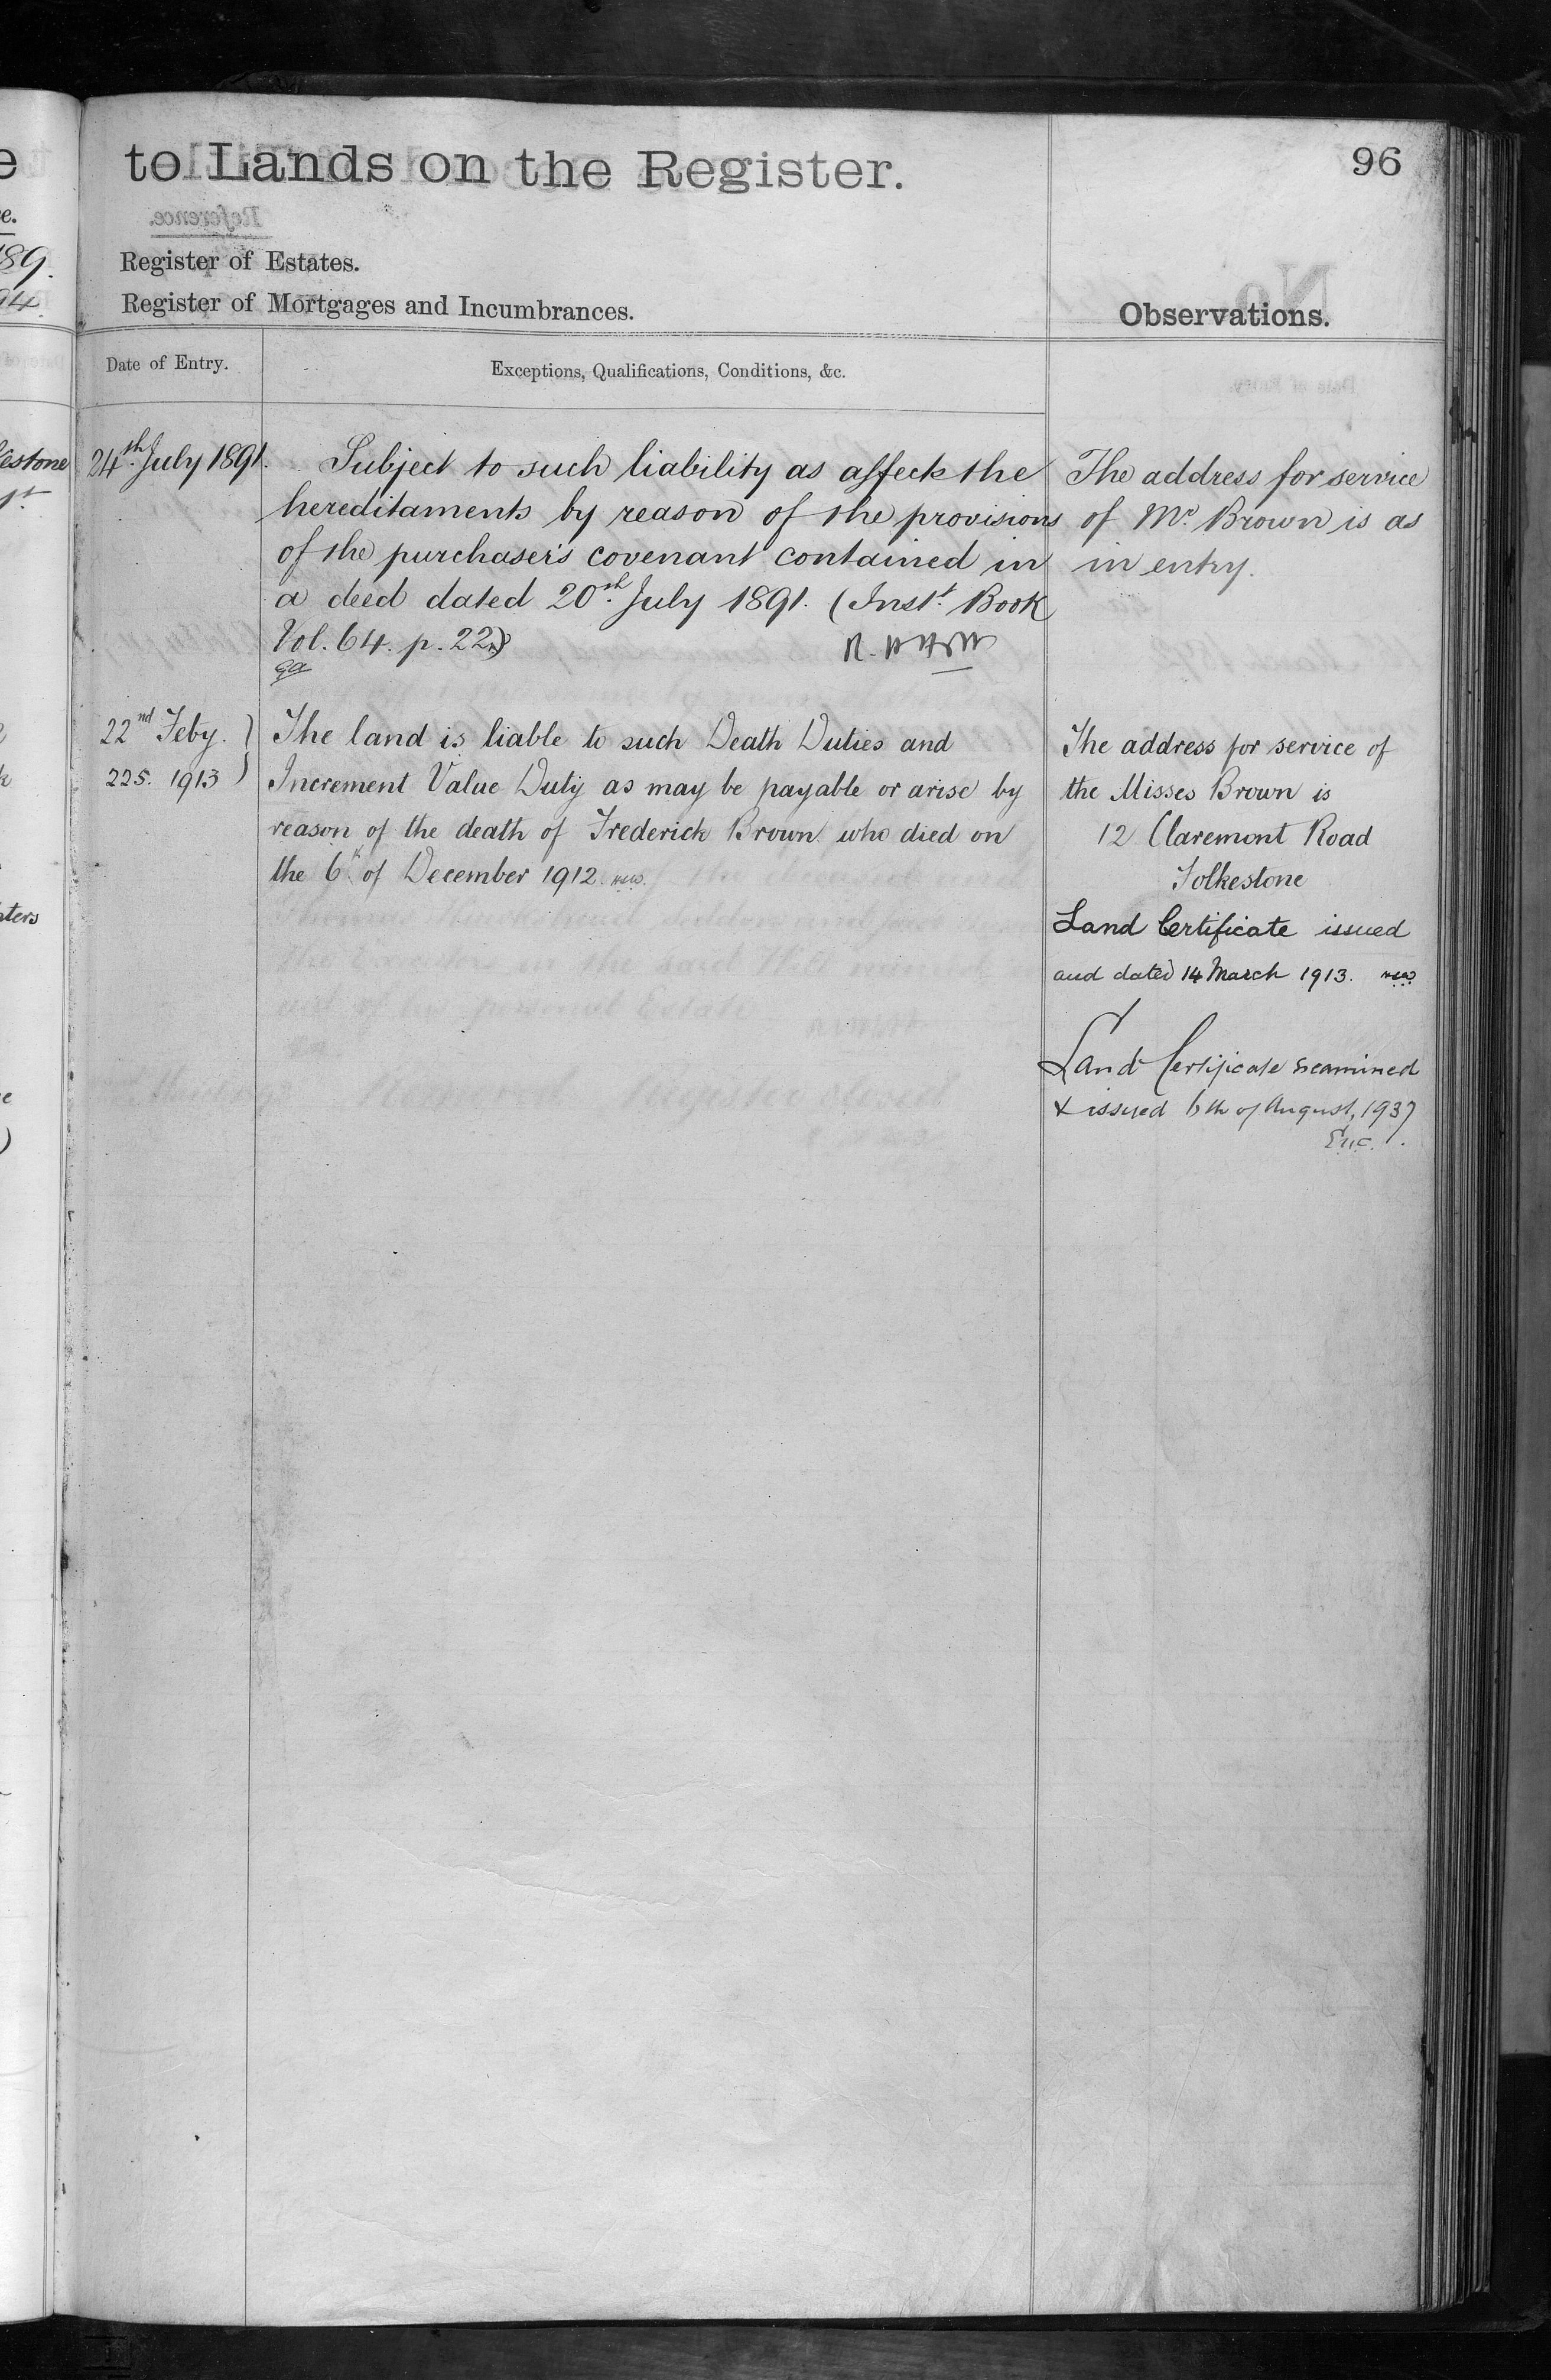 to Lands on the Register.
96
Register of Estates.
Register of Mortgages and Incumbrances.
Observations.
Date of Entry.
Exceptions, Qualifications, Conditions, &c.
24th July 1891.
Subject to such liability as affects the
hereditaments by reason of the provisions
of the purchaser's covenant contained in
a deed dated 20th July 1891. (Inst. Book
Vol. 64. p. 22)
The address for service
of Mr. Brown is as
in entry.
22nd Feby.
225. 1913
The land is liable to such Death Duties and
Increment Value Duty as may be payable or arise by
reason of the death of Frederick Brown who died on
the 6th of December 1912
The address for service of
the Misses Brown is
12 Claremont Road
Folkestone
Land Certificate issued
and dated 14 March 1913.
Land Certificate examined
& issued 6th of August, 1937